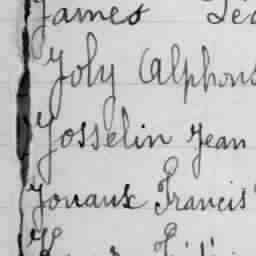 James
Joly Alphons
Josselin Jean
Jouaux Francis